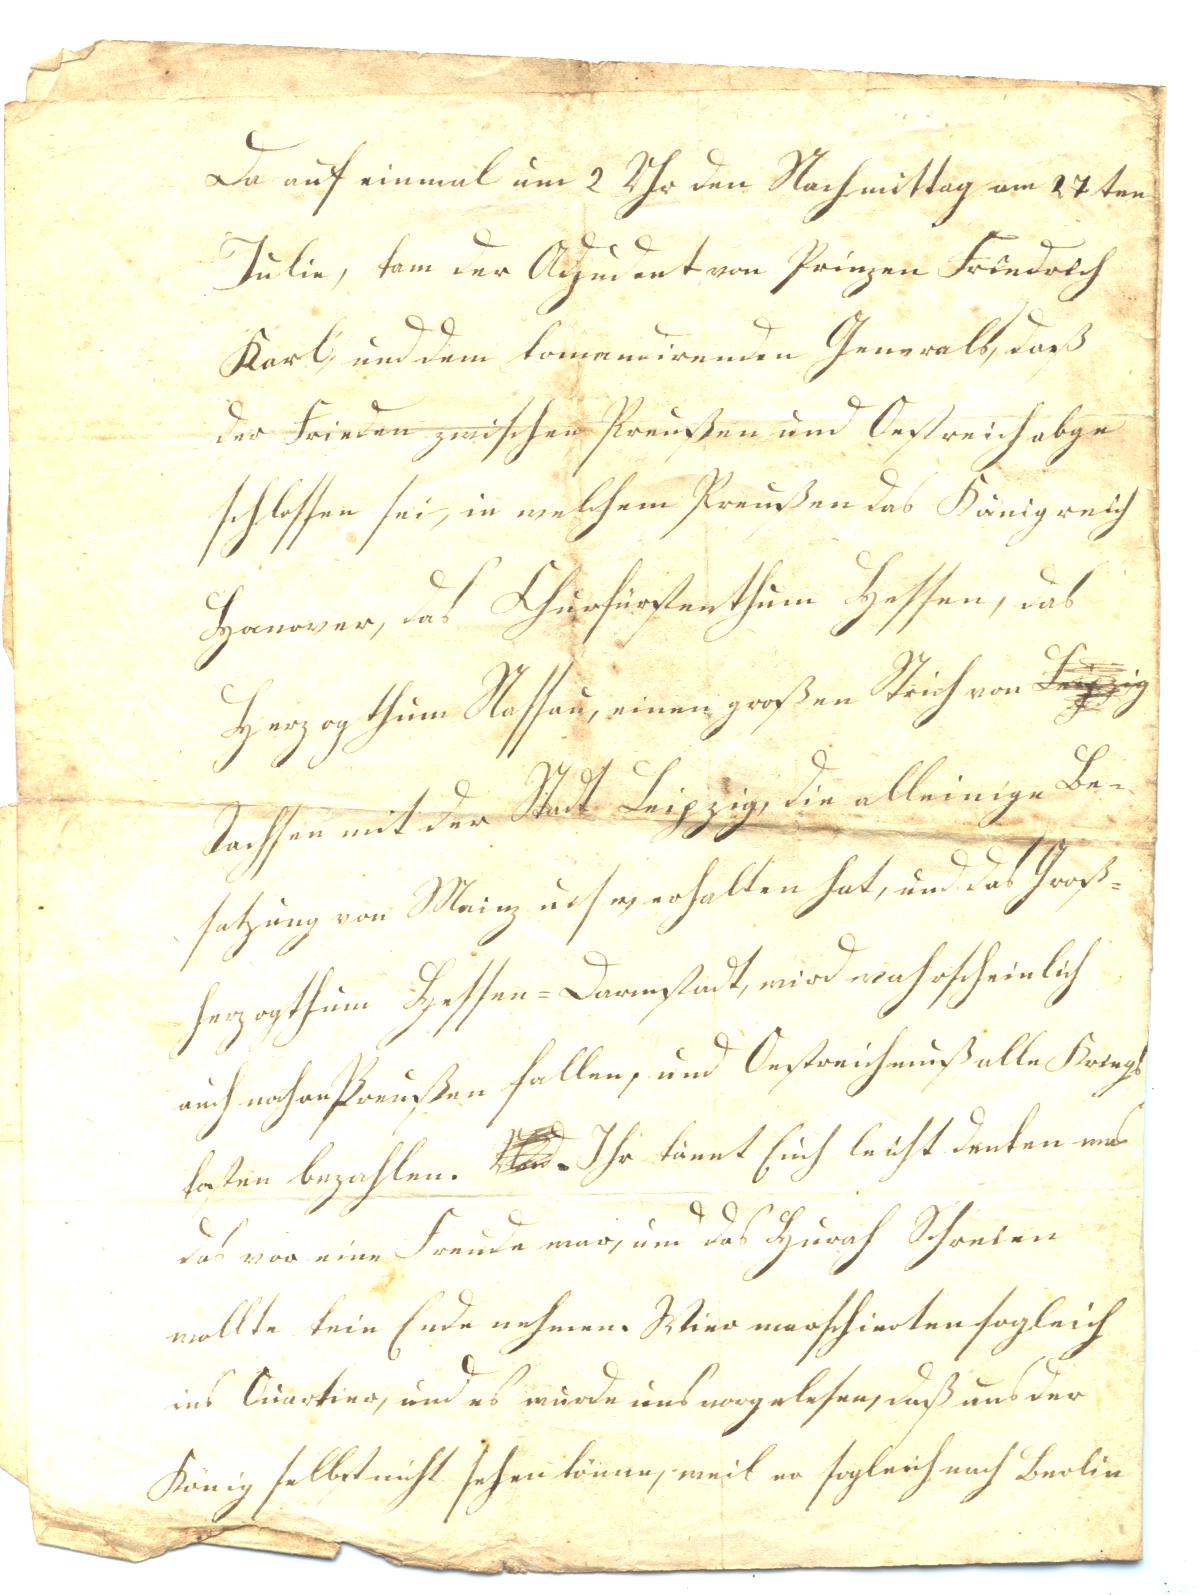 Da auf einmal um 2 Uhr den Nachmittag am 27ten
Julie, kam der Adjudent von Prinzen Friedrich
Karl, und dem komandirenden Generals, daß
der Frieden zwischen Preußen und Oestreich abge
schlossen sei, in welchem Preußen das Königreich
Hanover, das Churfürstenthum Hessen, das
Herzogthum Nassau, einen großen Strich von Leipzig
Sachsen mit der Stadt Leipzig, die alleinige Be-
satzung von Mainz usw erhalten hat, und das Groß=
herzogthum Hessen=Darmstadt, wird wahrscheinlich
auch noch an Preußen fallen, und Oestreich muß alle Kriegs
kosten bezahlen. Und. Ihr könnt Euch leicht denken was
das vor eine Freude war, und das Hurah Schreien
wollte kein Ende nehmen. Wier marschierten sogleich
ins Quartier, und es wurde uns vorgelesen, daß uns der
König selbst nicht sehen könne, weil er sogleich nach Berlin